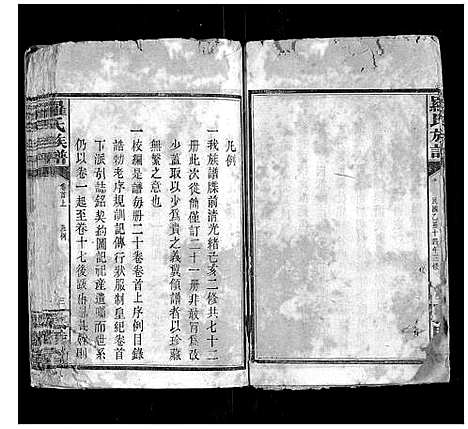 羅氏族譜
民國乙丑十四年三修
凡例
一我族譜牒前清光緒己亥二修共七十二
册此次從簡僅訂二十一册非敢苟爲改
少蓋取以少爲貴之義冀領譜者以珍藏
無繁之意也
一校編是譜每册二十卷卷首上序例目錄
誥勅老序規訓記傳行狀服制皇紀卷首
下派引誌銘契約圖記祀産遺囑而世系
仍以卷一起至卷十七後跋
則
羅氏族譜
卷首上
凡例
三